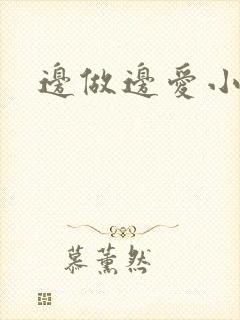 邊做邊愛小
慕薰然